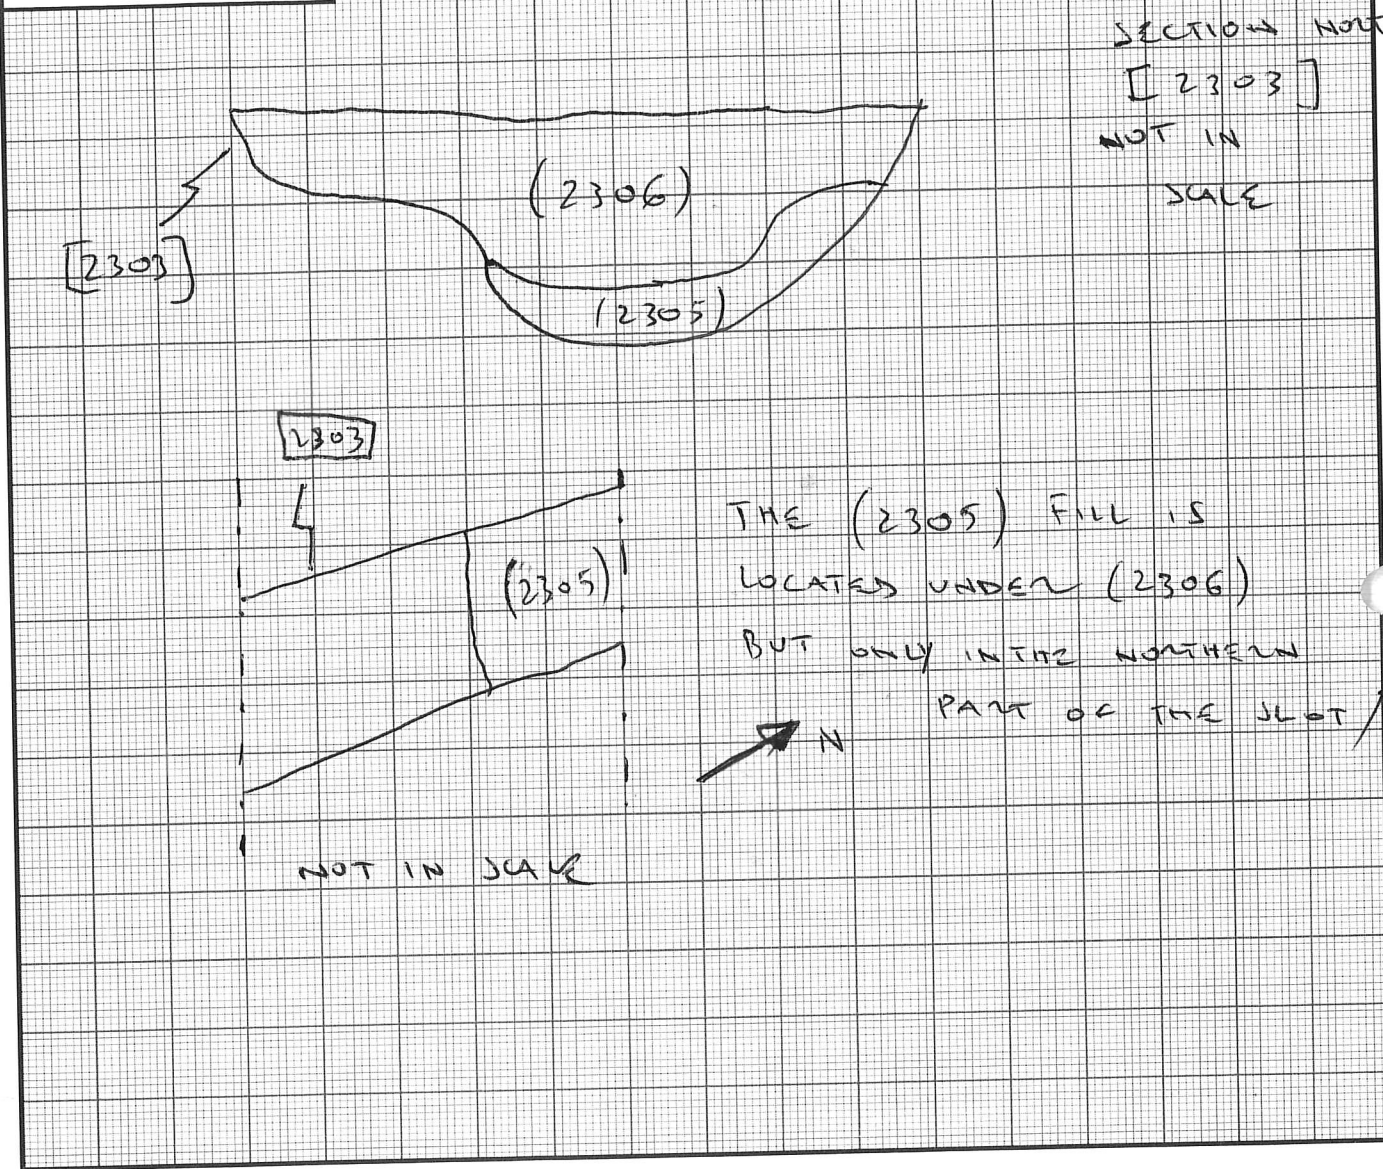 SECTION NORT
[2303]
NOT IN
SCALE
(2306)
[2303]
(2305)
[2303]
(2305)
THE (2305) FILL IS
LOCATED UNDER (2306)
BUT ONLY IN THE NORTHERN
PART OF THE SLOT
N
NOT IN SCALE